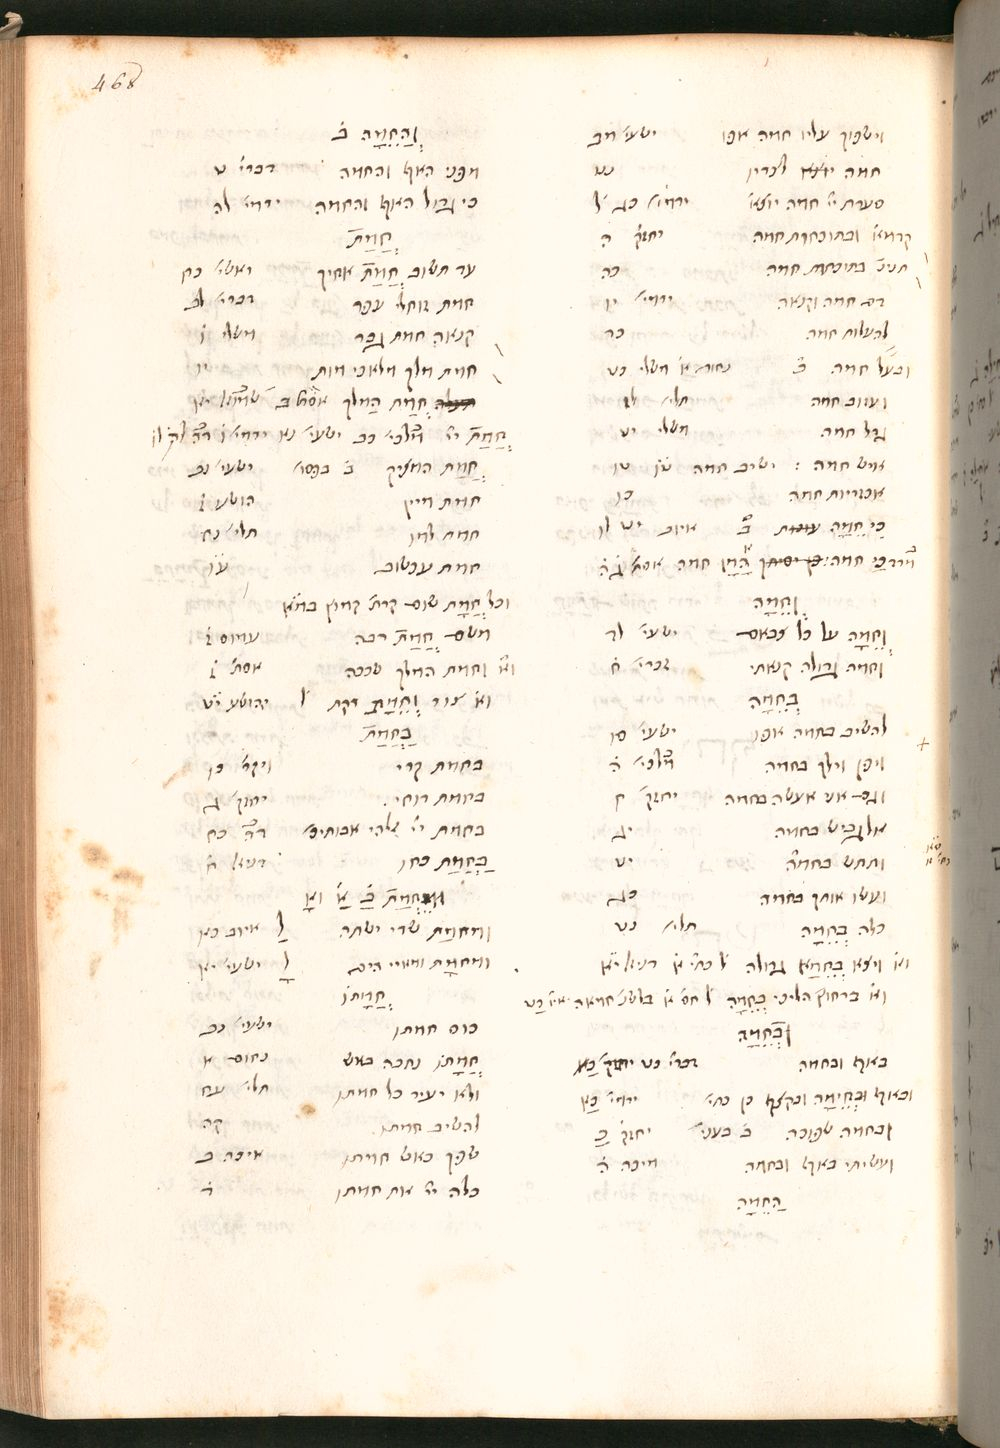 468
וישפוך עליו חמה אפו ישעי׳ מב
חמה יצאא לצריו נט
סערת יי׳ חמה יוצא׳ ירמי׳ כג ל׳
ובתוכחת חמה יחזק׳ ה
בתוכחות חמה כה
דם חמה וקנאה יו
להעלות חמה כד
ובעל חמה ב נחום א׳ משלי כט
ועזוב חמה תלי׳ לז
גדל חמה משלי יט
איש חמה : ישיב חמה טו
אכזריות חמה כז
כִּי חֵמָה ב איוב יט לו
חמה הָמָן חמה אסת׳ ג ה
וְחֵמָה
וְחֵמָה על כל צבאם ישעי׳ לד
וחמה גדולה קנאתי זכרי׳ ח
בְּחֵמָה
להשיב בחמה אפו ישעי׳ סו
ויפן וילך בחמה מלכי׳ ה
וגם אני אעשה בחמה יחזק׳ ח
אלגביש בחמה יג
ותתש בחמה יט
ועשו אותך בחמה כג
כלה בְּחֵמָה תלי׳ נט
וא׳ ויצא בְּחֵמָא גדולה ל׳ כתי׳ א׳ דניאל יא
וא׳ ברחוק הליכי בְּחֵמָה ל׳ חס׳ א׳
וּבְּחֵמָה
באף ובחמה דברי׳ כט
ובאף וּבְחֵימָה ובקצף כן כתי׳ ירמי׳ כא
ובחמה שפוכה ב בעני׳ יחזק׳ כ
ועשיתי באף ובחמה מיכה ה
הַחֵמָה
וְהַחֵמָה ב
מפני האף והחמה דברי׳ ט
כי גדול האף והחמה ירמי׳ לה
חֲמַת
עד תשוב חֲמַת אחיך ראשי׳ כח
חמת זוחלי עפר דברי׳ לב
קנאה חמת גבר משלי ו
חמת מלך מלאכי מות יו
חֲמַת הַמלך אסתר ב
חֲמַת יי׳ מלכי׳ כב ישעי׳ נא ירמי׳ ו
חֲמַת המציק ב בפסו׳ ישעי׳ נב
חמת מיין הושע ז
חמת למו תלי׳ נח
חמת עכשוב
וכל חֲמָת שום קרת׳ קמוץ במ׳א
משם חֲמַת רבה עמוס ו
וא׳ וחמת המלך שככה אסת׳ ז
וא׳ צור וְחַמַּת רקת ל׳ יהושע יט
בַּחֲמַת
בחמת קרי ויקר׳ כו
בחמת רוחי יחזק׳ ג
בחמת יי׳ אלהי אבותיכ׳ כח
בַּחֲמַת כחו דניאל ח
וּמֵחֲמַת
ומחמת שדי ישתה ל איוב כא
ומחמת ומאיי הים ל ישעי׳ יא
חֲמָתוֹ
כוס חמתו ישעי׳ נב
חֲמָתוֹ נתכה כאש נחום א
ולא יעיר כל חמתו תלי׳ עח
להשיב חמתו קה
שפך כאש חמתו איכה ב
כלה יי׳ את חמתו ד